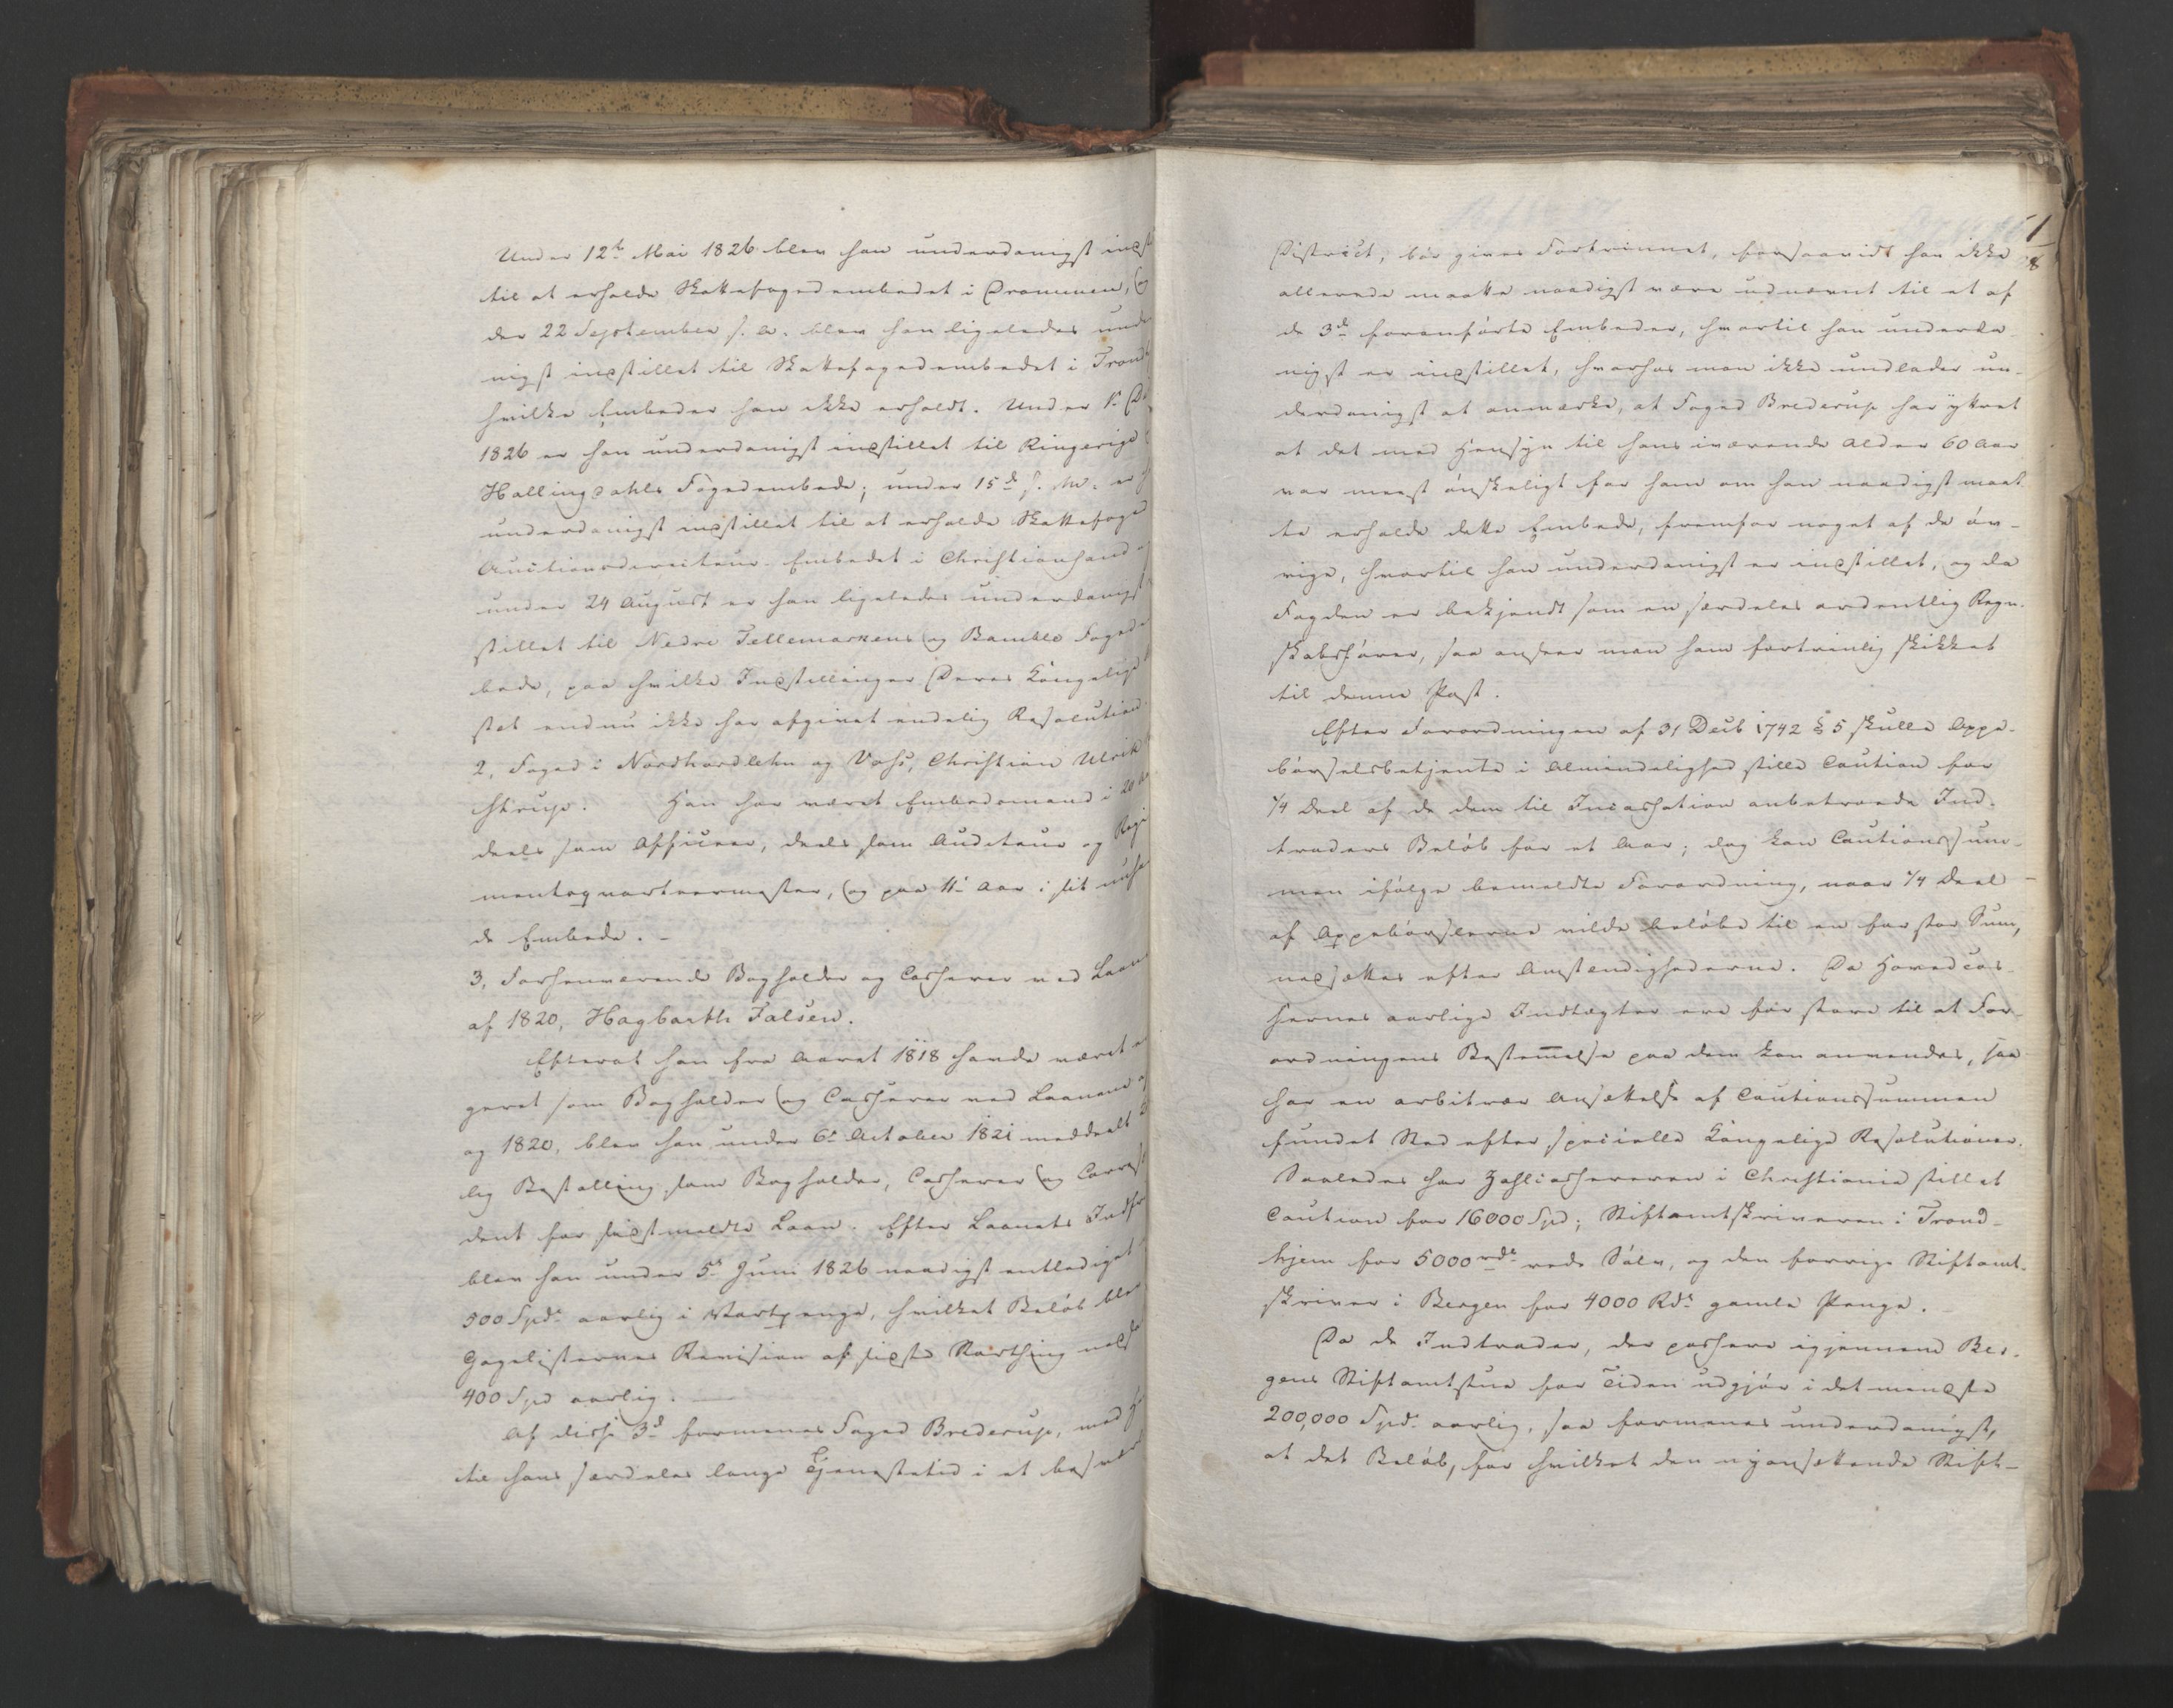 Under 12te Mai 1826 blev han underdanigst indst
til at erholde Skattefogedembedet i Drammen, og
der 22 September s. A. blev han ligeledes unde
nigst indstillet til Skattefogedembedet i Trond
hvilke Embeder han ikke erholdt. Under 1e De
1826 er han underdanigst indstillet til Ringerige
Hallingdahls Fogedembede; under 15de s. M. er h
underdanigst indstillet til at erholde Skattefoged
Auctionsdirecteur-Embedet i Christiansand
under 24 August er han ligeledes underdanigst
stillet til Nedre Tellemarkens og Bamble Foged
bede, paa hvilke Indstillinger Deres Kongelige
stet endnu ikke har afgivet endelig Resolution.
2, Foged i Nordhordlehn og Voss, Christian Ulrik
strup. Han har været Embedsmand i 20
deels som Officeer, deels som Auditeur og Regi
mentsqvarteermester, og paa 11te Aar i sit nuhæ
de Embede. –
3, Forhenværende Bogholder og Casserer ved Laan
af 1820, Hagbarth Falsen.
Efterat han fra Aaret 1818 havde været
geret som Bogholder og Casserer ved Laanene
og 1820, blev han under 6te October 1821 meddeelt
lig Bestalling som Bogholder, Casserer og Corres
dent for sidstmeldte Laan. Efter Laanets Indfr
blev han under 5te Juni 1826 naadigst entlediget
500 Spd. aarlig i Vartpenge, hvilket Beløb blev
Gagelisternes Revision af sidste Storthing neds
400 Spd aarlig. –
Af disse 3de formenes Foged Brederup, med H
til hans særdeles lange Tjenestetid i et besvær
District, bør gives Fortrinnet, forsaavidt han ikke
allerede maatte naadigst være udnævnt til et af
de 3de foranførte Embeder, hvortil han underda-
nigst er indstillet, hvorhos man ikke undlader un-
derdanigst at anmærke, at Foged Brederup har yttret
at det med Hensyn til hans iværende Alder 60 Aar
var meest ønskeligt for ham om han naadigst maat
te erholde dette Embede, fremfor noget af de øv-
rige, hvortil han underdanigst er indstillet, og da
Fogden er bekjendt som en særdeles ordentlig Regn-
skabsfører, saa ansees man ham fortrinlig skikket
til denne Post.
Efter Forordningen af 31 Decb 1742 § 5 skulle Oppe-
børselsbetjente i Almindelighed stille Caution for
1/4 Deel af de dem til Incassation anbetroede Ind-
traders Beløb for et Aar; dog kan Cautionssum-
men ifølge bemeldte Forordning, naar 1/4 Deel
af Oppebørslerne vilde beløbe til en for stor Sum,
nedsættes efter Omstændighederne. Da Hovedcas-
sernes aarlige Indtægter ere for store til at For-
ordningens Bestemelse paa dem kan anvendes, saa
har en arbitrær Ansættelse af Cautionssummen
fundet Sted efter specielle Kongelige Resolutioner.
Saaledes har Zahlcassereren i Christiania stillet
Caution for 16000 Spd; Stiftamtskriveren i Trond-
hjem for 5000 rde rede Sølv, og den forrige Stiftamt-
skriver i Bergen for 4000 Rdr gamle Penge. –
Da de Indtrader, der passere igjennem Ber-
gens Stiftamtstue for Tiden udgjør i det mendste
200,000 Spd. aarlig, saa formenes underdanigst,
at det Beløb, for hvilket den nyansættende Stift-